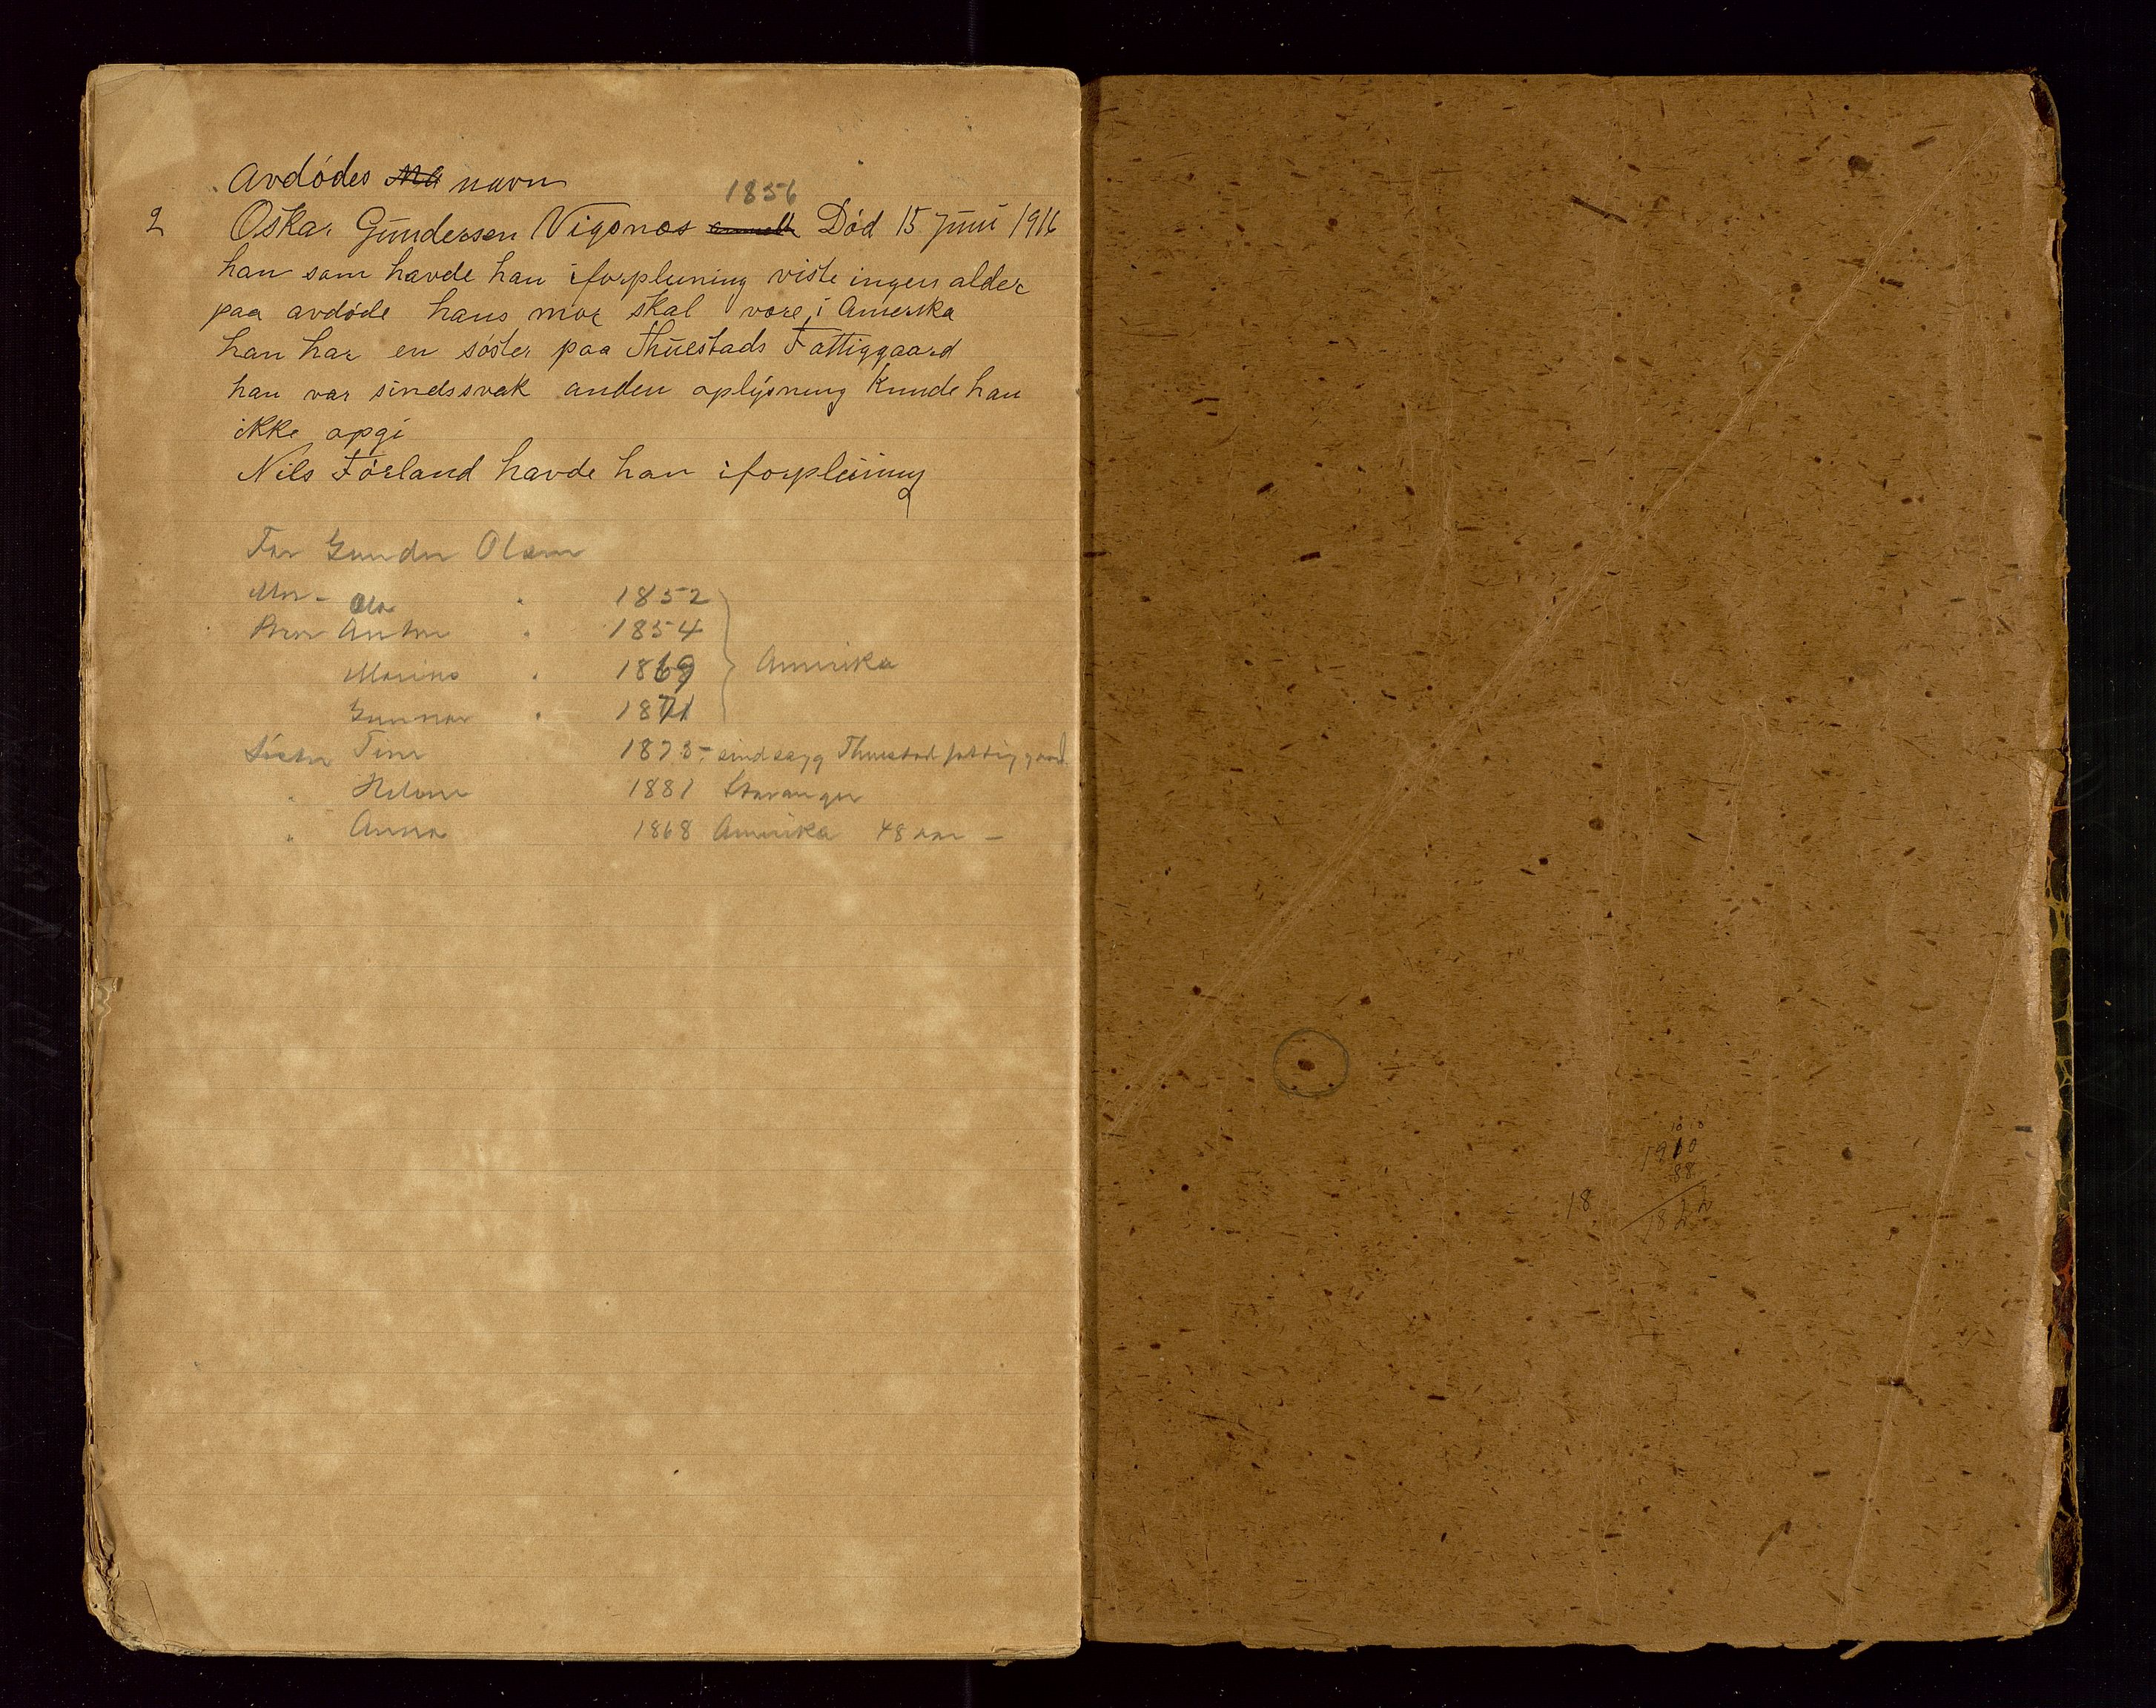 Avdødes navn
1856
2 Oskar Gundersen Vigenes Død 15 Juni 1916
han som havde han iforpleining viste ingen alder
paa avdøde hans mor skal være i Amerika
han har en søster paa Thuestads Fattiggaard
han var sindssvak anden oplysning Kunde han
ikke opgi
Nils Førland havde han iforpleining
Far Gunder Olsen
Mor - Ola " 1852
Bror Anton " 1854
Marino " 1869 Amerika
Gunnar " 1871
Søster Tine 1873 - sindssyg Thuestad fattiggaard
" Helene 1881 Stavanger
" Anna 1868 Amerika 48 aar -
10 10
1910
88
18 1822